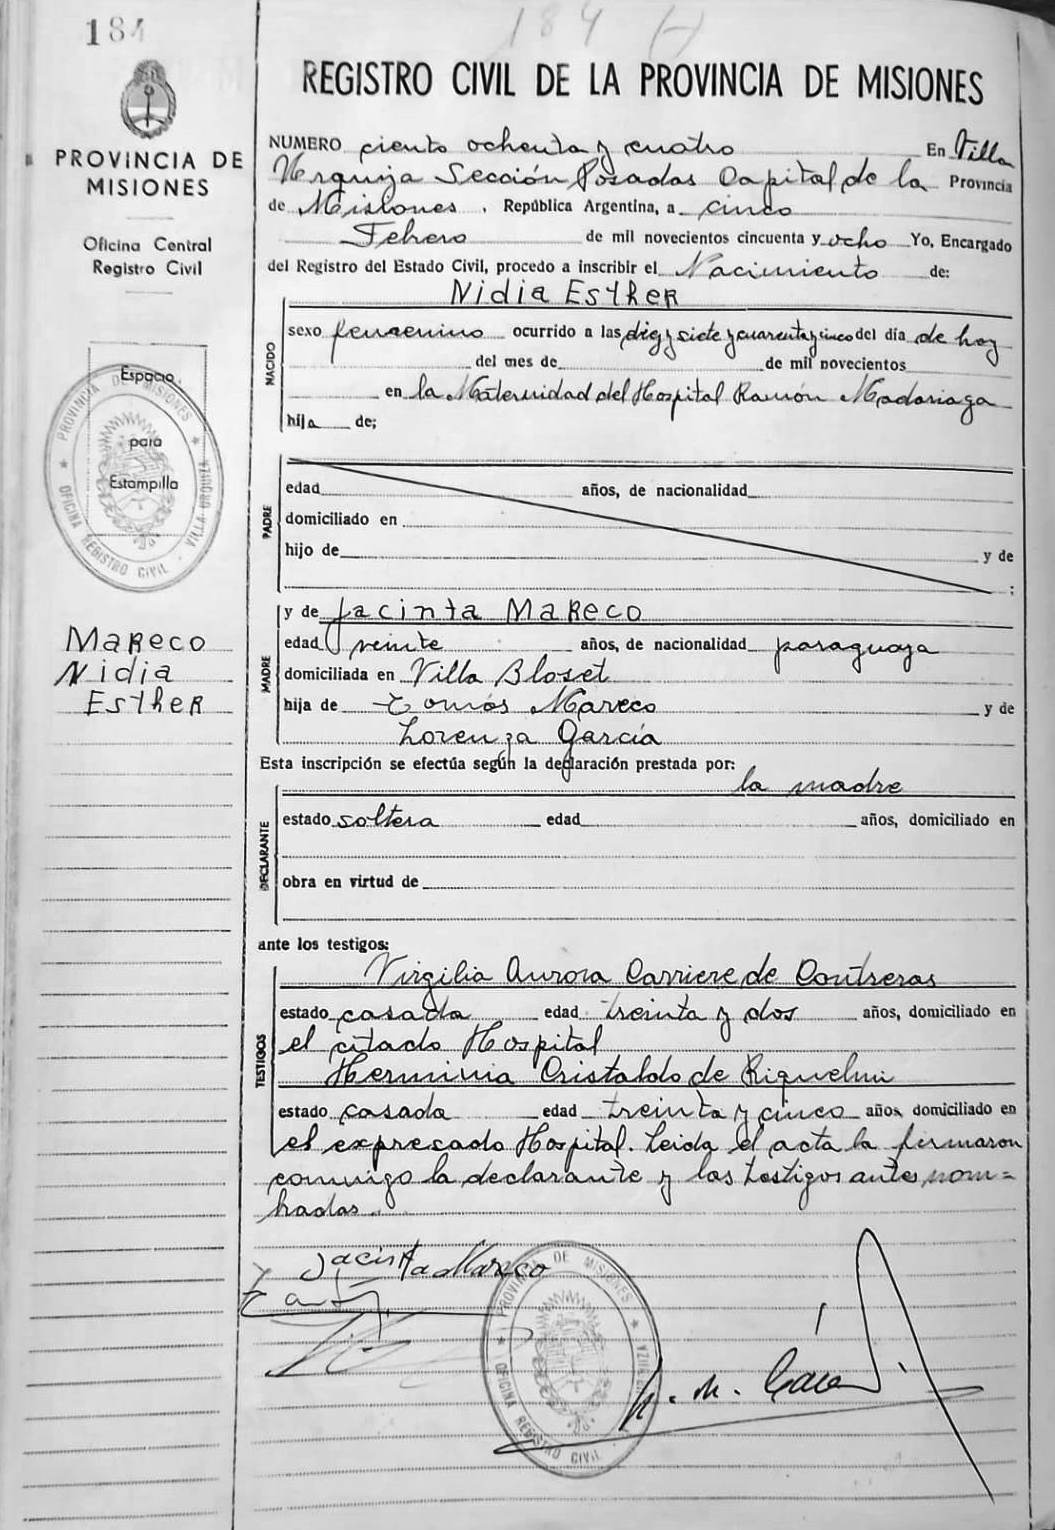 184
184 (-)
PROVINCIA DE
MISIONES
Oficina Central
Registro Civil
Espacio
para
Estampilla
PROVINCIA DE MISIONES
OFICINA REGISTRO CIVIL
VILLA URQUIZA
Mareco
Nidia
Esther
REGISTRO CIVIL DE LA PROVINCIA DE MISIONES
NUMERO ciento ochenta y cuatro En Villa
Urquiza Sección Posadas Capital de la Provincia
de Misiones. República Argentina, a cinco
Febrero de mil novecientos cincuenta y ocho Yo, Encargado
del Registro del Estado Civil, procedo a inscribir el Nacimiento de:
Nidia Esther
NACIDO
sexo femenino ocurrido a las diez y siete y cuarenta y cinco del día de hoy
del mes de de mil novecientos
en la Maternidad del Hospital Ramón Madariaga
hija de;
PADRE
edad años, de nacionalidad
domiciliado en
hijo de y de
;
MADRE
y de Jacinta Mareco
edad veinte años, de nacionalidad paraguaya
domiciliada en Villa Bloset
hija de Tomás Mareco y de
Lorenza García
Esta inscripción se efectúa según la declaración prestada por:
la madre
DECLARANTE
estado soltera edad años, domiciliado en
obra en virtud de
ante los testigos:
TESTIGOS
Virgilia Aurora Carriere de Contreras
estado casada edad treinta y dos años, domiciliado en
el citado Hospital
Herminia Cristaldo de Riquelmi
estado casada edad treinta y cinco años, domiciliado en
el expresado Hospital. Leida el acta la firmaron
conmigo la declarante y las testigos antes nom=
bradas.
Jacinta Mareco
PROVINCIA DE MISIONES
OFICINA REGISTRO CIVIL